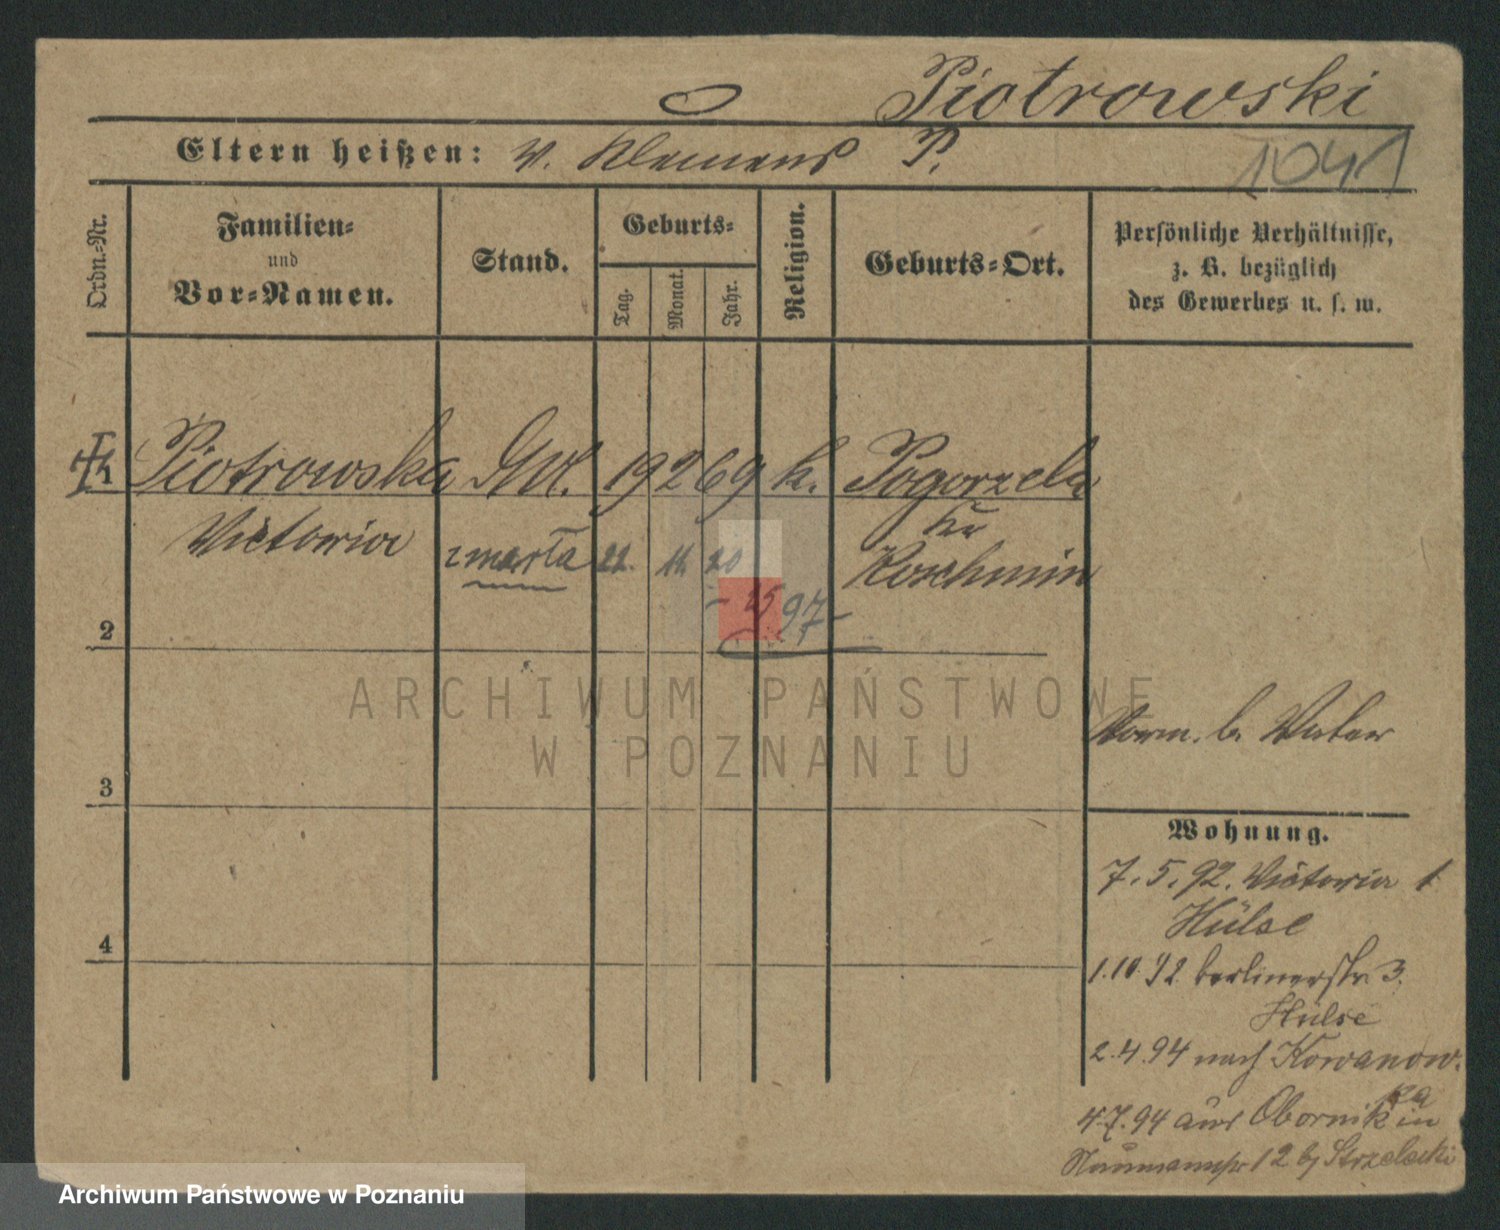 Piotrowski
Eltern heißen: v. Klemens P.
1041
Ordn.-Nr.
Familien-
und
Vor-Namen.
Stand.
Geburts-
Tag.
Monat.
Jahr.
Religion.
Geburts-Ort.
Persönliche Verhältnisse,
z. B. bezüglich
des Gewerbes u. s. w.
1 Piotrowska 19 2 69 k. Pogorzela
Victoria
Kr
Koschmin
zmarła 22. 11. 20
- 15 97 -
2
3
4
ARCHIWUM PAŃSTWOWE
W POZNANIU
b. Vater
Wohnung.
7.5.92. Victoria 1
Hülse
1.10.92 berlinerstr. 3.
Hülse
2.4.94 nach Kowanow-
ka
4.7.94 aus Obornik in
12 bj Strzelecki
Archiwum Państwowe w Poznaniu